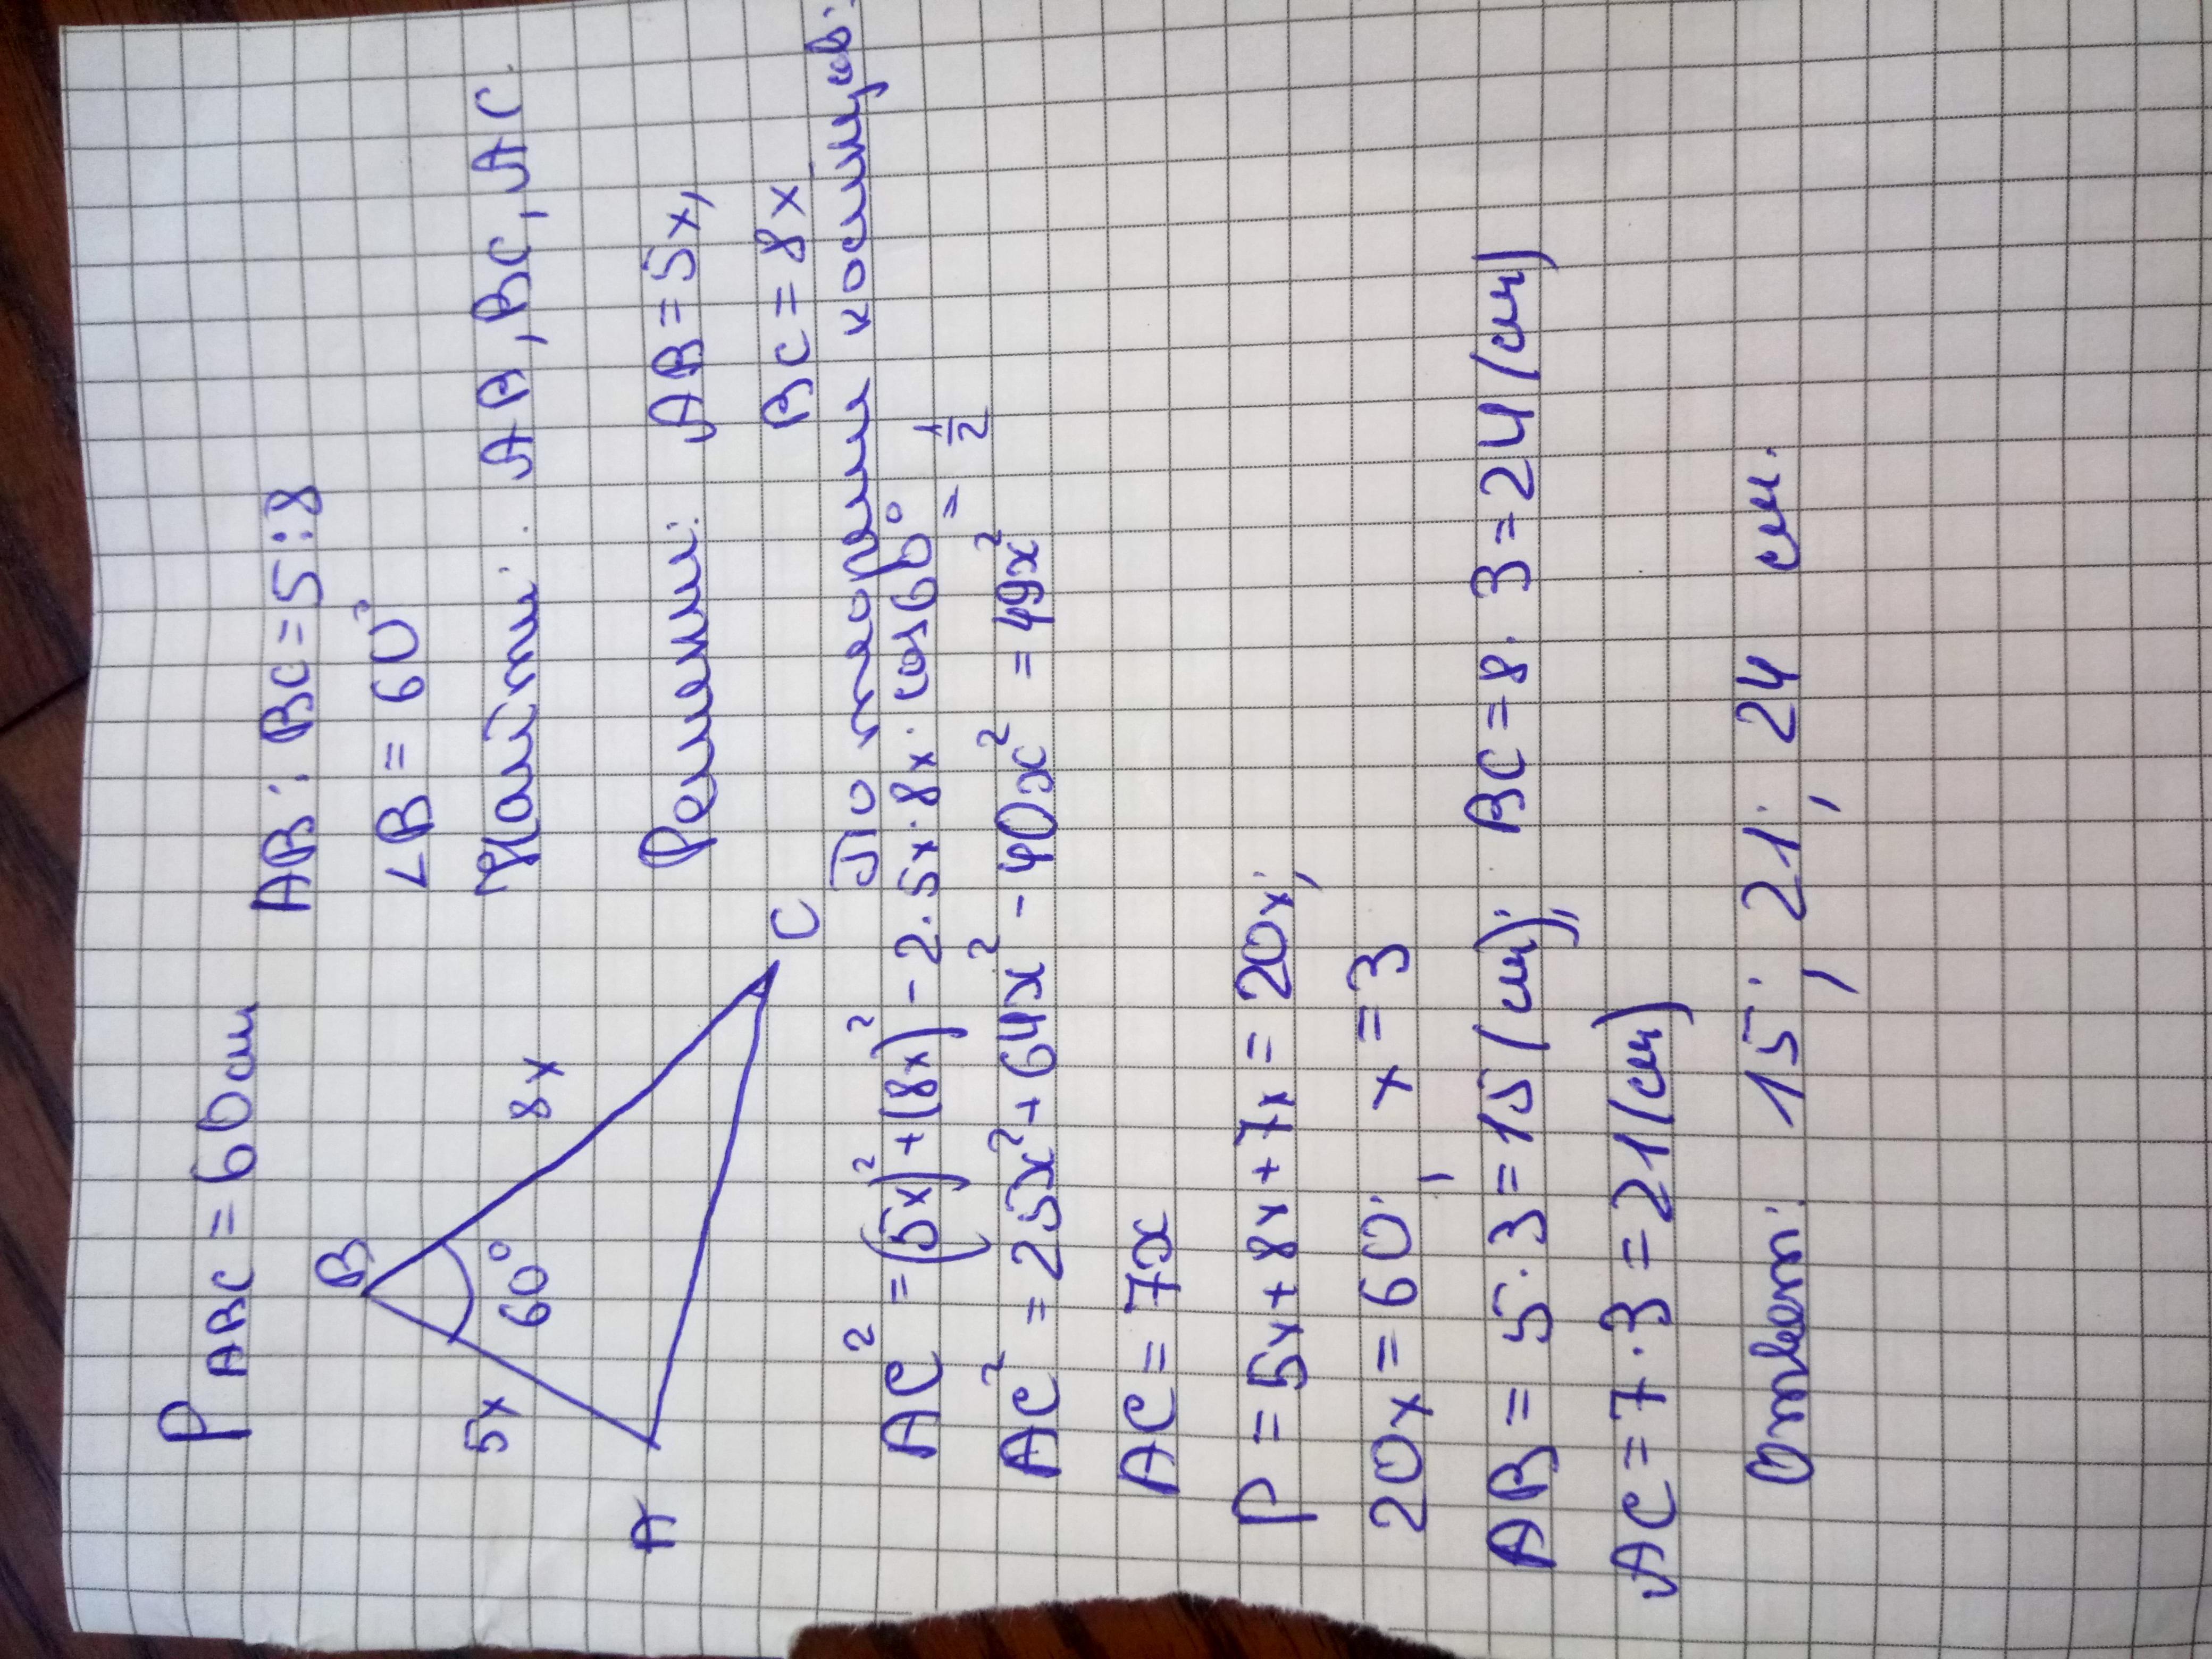 P ABC = 60 см
AB : BC = 5:8
∠B = 60°
Найти: AB, BC, AC.
B
5x
60°
8x
A
C
Решение: AB = 5x,
BC = 8x
По теореме косинусов:
AC² = (5x)² + (8x)² - 2·5x·8x·cos60° = 1/2
AC² = 25x² + 64x² - 40x² = 49x²
AC = 7x
P = 5x + 8x + 7x = 20x;
20x = 60; x = 3
AB = 5·3 = 15 (см); BC = 8·3 = 24 (см)
AC = 7·3 = 21 (см)
Ответ: 15; 21; 24 см.